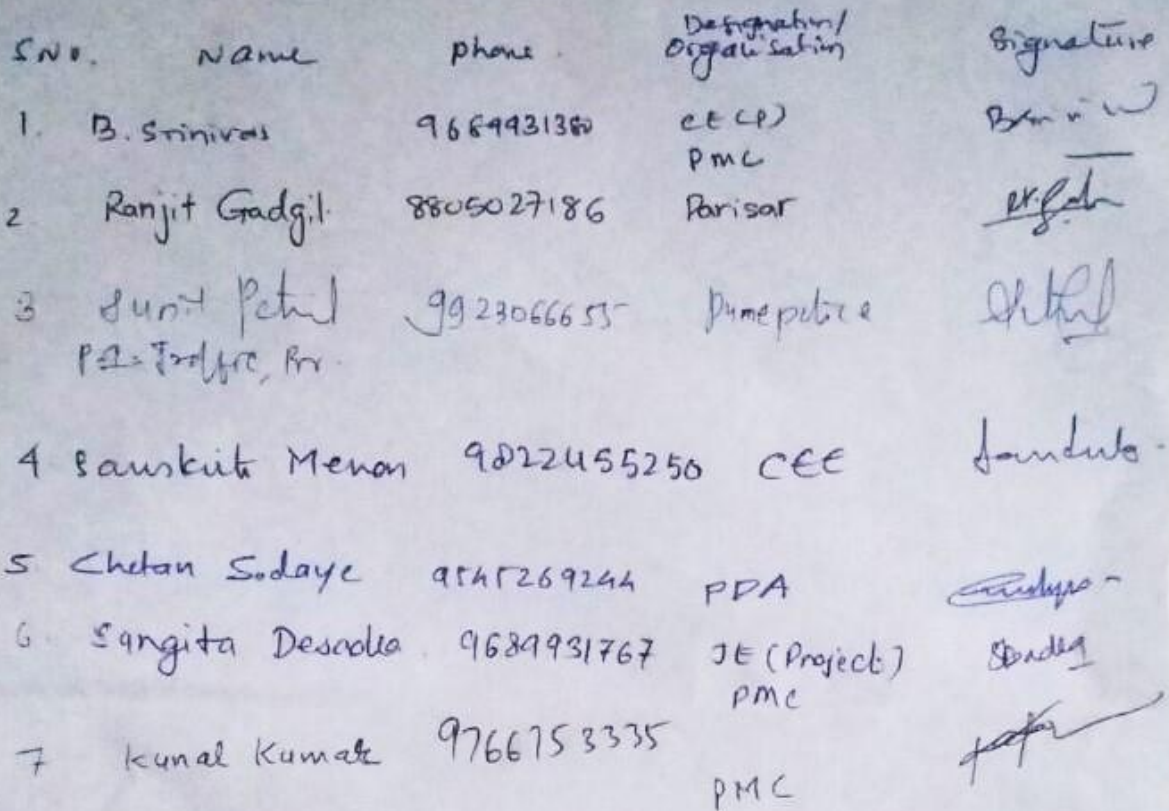 S No. Name phone Designation/ Organisation Signature
1. B. Srinivas 9689931380 CE (P) PMC
2 Ranjit Gadgil. 8805027186 Parisar
3 Sunil Patil 9923066655 Pune police
PI - Traffic,
4 Sanskriti Menon 9822455250 CEE
5 Chetan Sodaye 9545269244 PDA
6 Sangita Desadla 9689931767 JE (Project) PMC
7 Kunal Kumar 9766753335 PMC